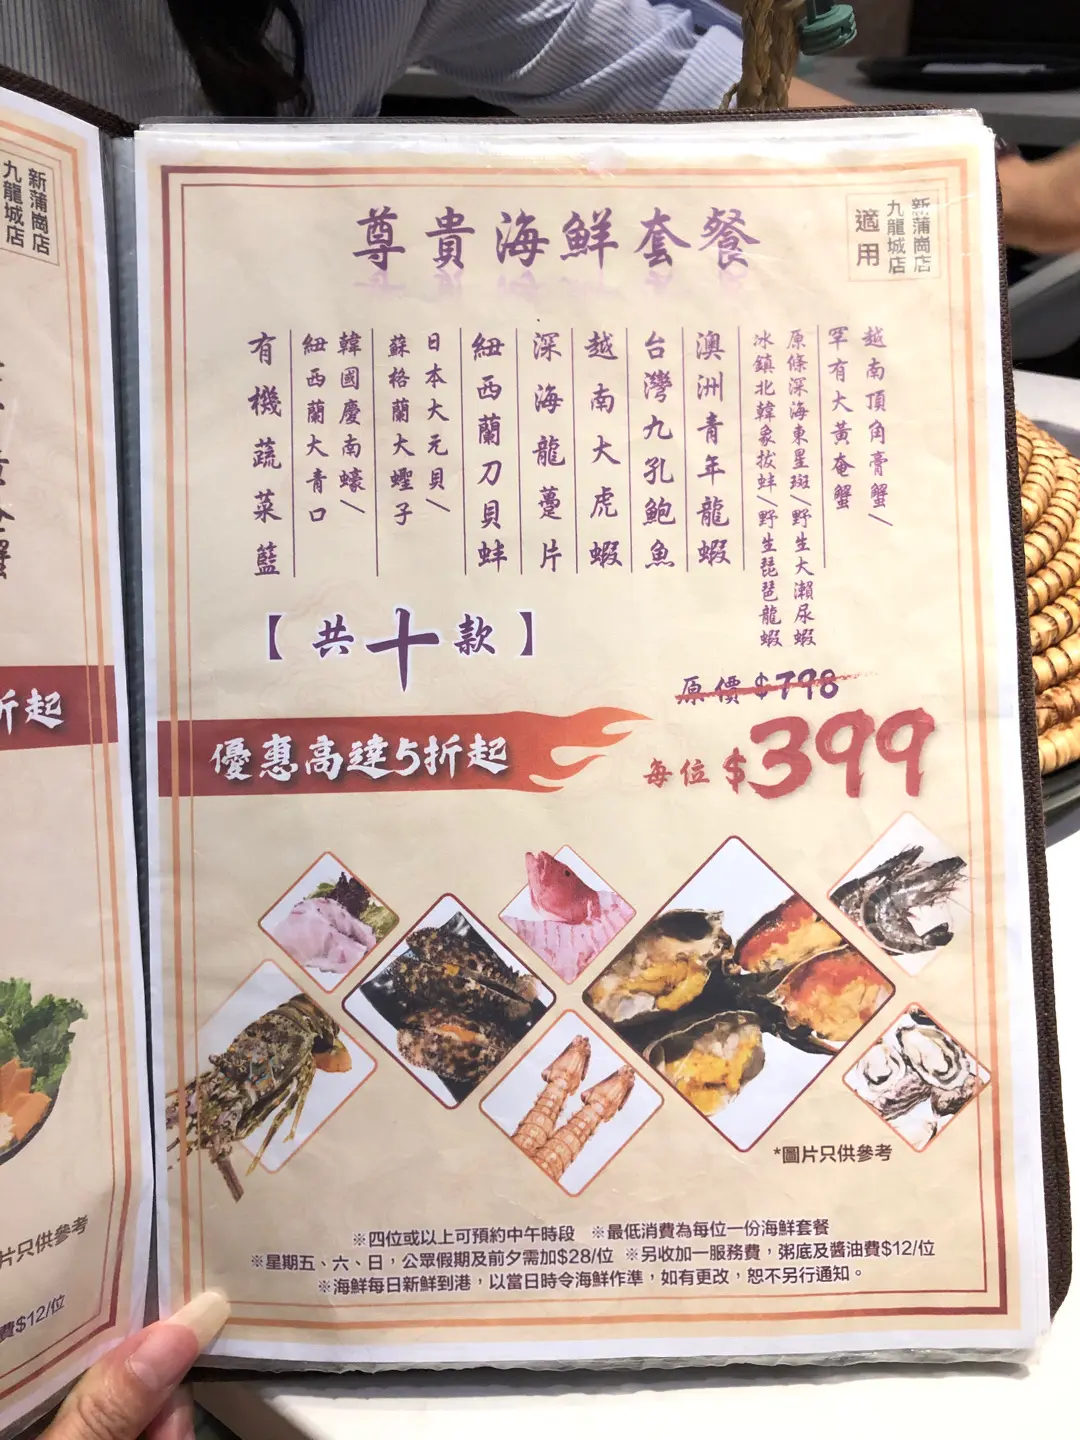 新蒲崗店
九龍城店
折起
片只供參考
費$12/位
尊貴海鮮套餐
新蒲崗店
九龍城店
適用
越南頂角膏蟹/
罕有大黃奄蟹
原條深海東星斑/野生大瀨尿蝦
冰鎮北韓象拔蚌/野生琵琶龍蝦
澳洲青年龍蝦
台灣九孔鮑魚
越南大虎蝦
深海龍躉片
紐西蘭刀貝蚌
日本大元貝/
蘇格蘭大蟶子
韓國慶南蠔/
紐西蘭大青口
有機蔬菜籃
【共十款】
原價$798
優惠高達5折起
每位$399
*圖片只供參考
※四位或以上可預約中午時段 ※最低消費為每位一份海鮮套餐
※星期五、六、日,公眾假期及前夕需加$28/位 ※另收加一服務費,粥底及醬油費$12/位
※海鮮每日新鮮到港,以當日時令海鮮作準,如有更改,恕不另行通知。